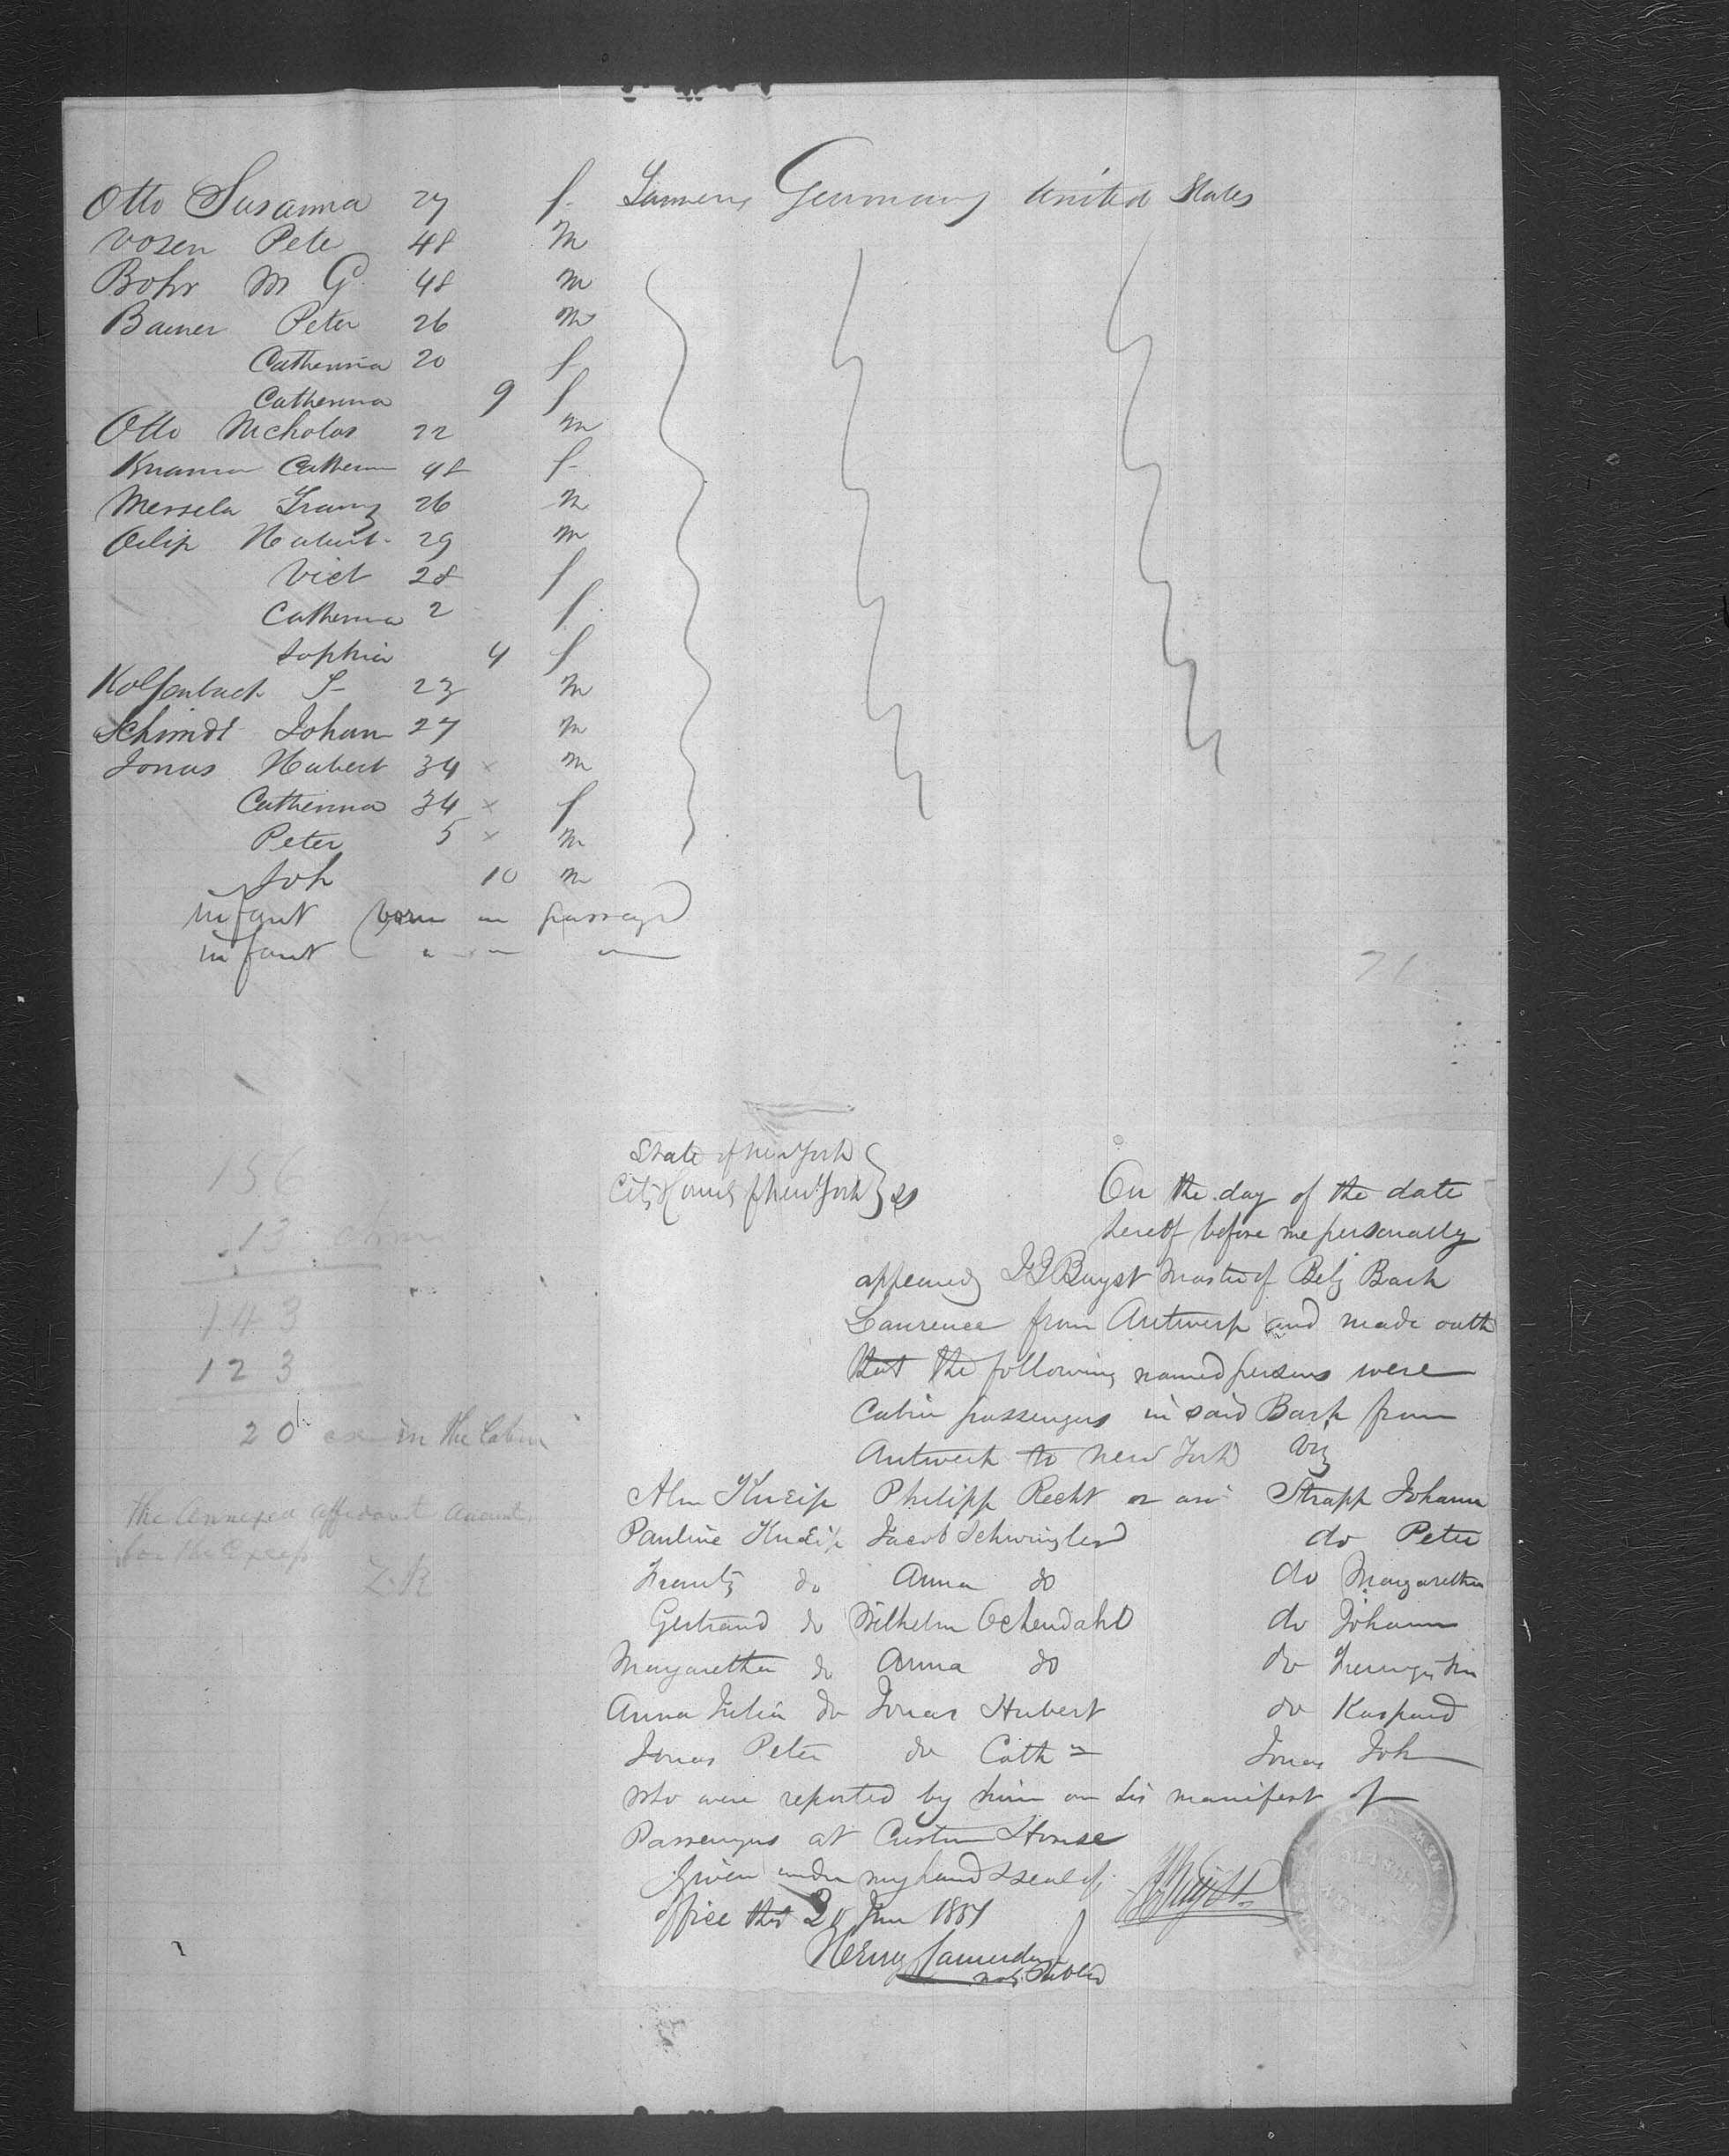 Otto Susanna 27 f. Farmers Germany United States
Vosen Pete 48 m
Bohr M G. 48 m
Bauer Peter 26 m
Catherina 20 f
Catherina 9 f
Otto Nicholas 22 m
Catherin 48 f
Franz 26 m
Hubert 29 m
Vict 28 f
Catherina 2 f
Sophia 4 f
Kolfenbach 23 m
Schimdt Johan 27 m
Jonas Hubert 34 x m
Catherina 34 x f
Peter 5 x m
Joh 10 m
infant born on passage
infant " " "
71
156
13
143
123
20 in the Cabin
The Annexed affidavit accounts
for the Excess
Z.R
State of New York
City & County of New York } ss
On the day of the date
hereof before me personally
appeared Master of Belg Bark
Laurence from Antwerp and made oath
that the following named persons were
Cabin passengers in said Bark from
Antwerp to New York viz
Kneip Philipp Recht Strapp Johann
Pauline Kneip Jacob Schwingler do Peter
Frantz do Anna do do Margaretha
Gertraud do Wilhelm Ochendahl do Johann
Margaretha do Anna do do
Anna Julia do Jonas Hubert do Kaspard
Jonas Peter do Cath Jonas Joh
who were reported by him on his manifest of
Passengers at Custom House
Given under my hand & seal of
office this 20 June 1857
Henry
Not. Public